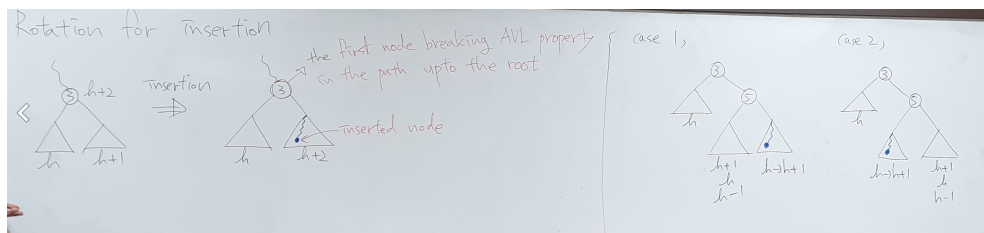 Rotation for insertion
3 h+2
h h+1
insertion
⇒
3
the first node breaking AVL property
in the path upto the root
inserted node
h h+2
case 1,
3
5
h
h+1 h→h+1
h
h-1
case 2,
3
5
h
h→h+1 h+1
h
h-1